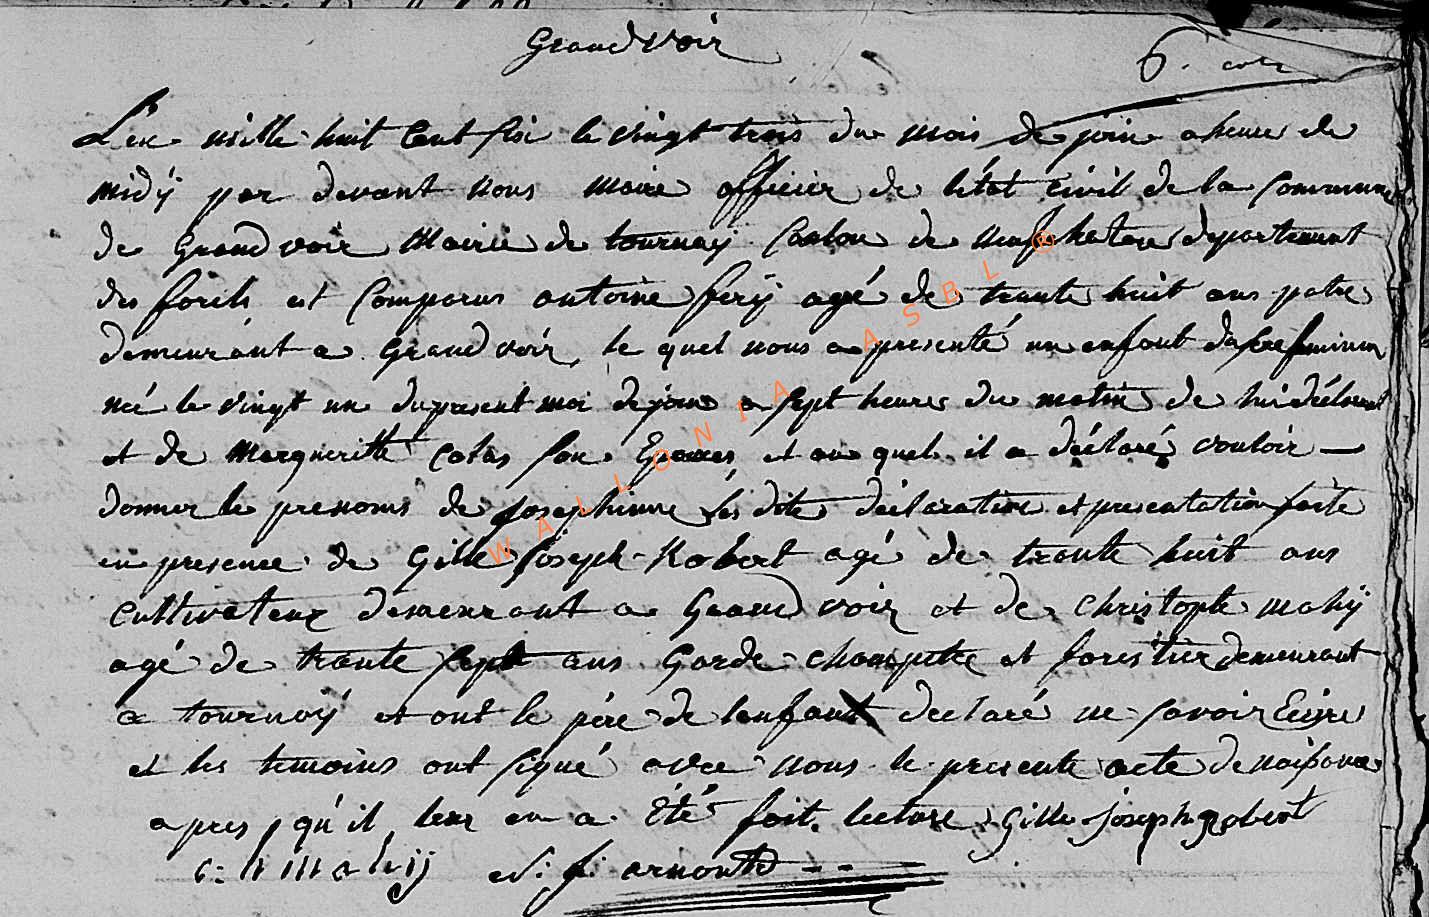 Grandvoir
6.
L'an mille huit cent six le vingt trois du mois de juin a heure de
midÿ par devant nous maire officier de létat civil de la commune
de Grandvoir Mairie de tournaÿ Canton de neufchateau departement
des forêts est comparus antoine ferÿ agé de trante huit ans patre
demeurant a Grandvoir, le quel nous a presenté un enfant du sexe feminin
née le vingt un du present moi de juin a sept heures du matin de lui déclarant
et de Margueritte colas son Epouse et au quel il a déclaré vouloir
donner le prenoms de Josephinne les dite déclaration et presentation faite
en presence de Gille Joseph Robert agé de trante huit ans
cultivateur demeurant a Grandvoir et de christophe mahÿ
agé de trante sept ans Garde champetre et forestier demeurant
a tournaÿ et ont le père de lenfant declaré ne savoir Ecire
et les temoins ont signé avec nous le presente acte de naissance
apres qu'il leur en a Eté fait lecture Gille joseph robert
c: h mahÿ J: arnould
WALLONIA ASBL ®